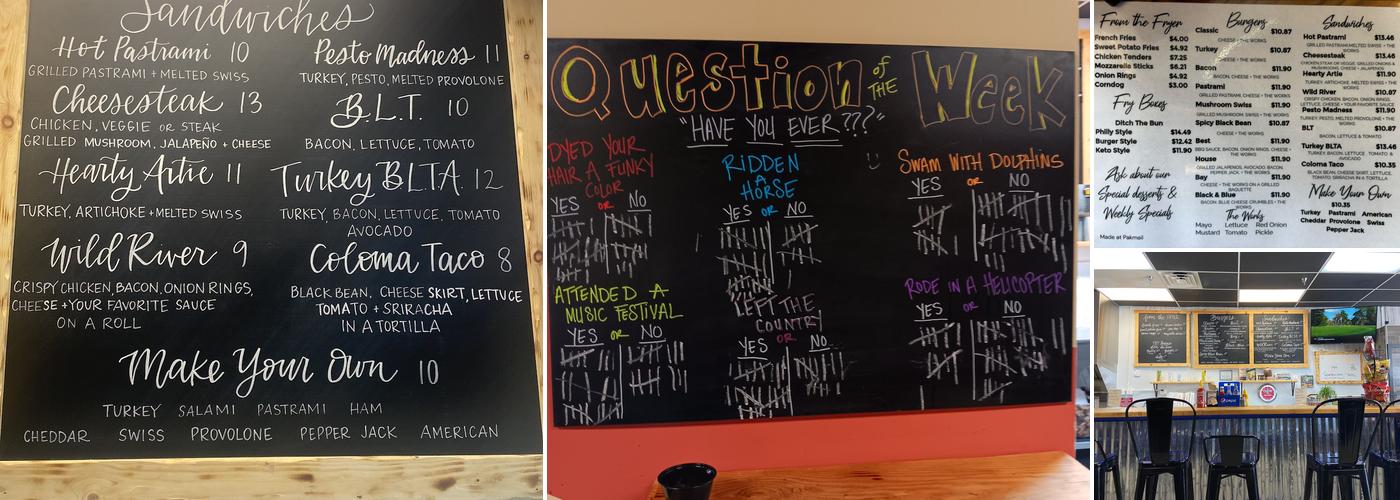 Sandwiches
Hot Pastrami 10
GRILLED PASTRAMI + MELTED SWISS
Cheesesteak 13
CHICKEN, VEGGIE OR STEAK
GRILLED MUSHROOM, JALAPEÑO + CHEESE
Hearty Artie 11
TURKEY, ARTICHOKE + MELTED SWISS
Wild River 9
CRISPY CHICKEN, BACON, ONION RINGS,
CHEESE + YOUR FAVORITE SAUCE
ON A ROLL
Pesto Madness 11
TURKEY, PESTO, MELTED PROVOLONE
B.L.T. 10
BACON, LETTUCE, TOMATO
Turkey B.L.T.A. 12
TURKEY, BACON, LETTUCE, TOMATO
AVOCADO
Coloma Taco 8
BLACK BEAN, CHEESE SKIRT, LETTUCE
TOMATO + SRIRACHA
IN A TORTILLA
Make Your Own 10
TURKEY SALAMI PASTRAMI HAM
CHEDDAR SWISS PROVOLONE PEPPER JACK AMERICAN
Question of THE Week
"HAVE YOU EVER???"
DYED YOUR
HAIR A FUNKY
COLOR
YES OR NO
RIDDEN
A
HORSE
YES OR NO
SWAM WITH DOLPHINS
YES OR NO
ATTENDED A
MUSIC FESTIVAL
YES OR NO
LEFT THE
COUNTRY
YES OR NO
RODE IN A HELICOPTER
YES OR NO
From the Fryer
French Fries $4.00
Sweet Potato Fries $4.92
Chicken Tenders $7.25
Mozzarella Sticks $6.21
Onion Rings $4.92
Corndog $3.00
Fry Boxes
Ditch The Bun
Philly Style $14.49
Burger Style $12.42
Keto Style $11.90
Ask about our
Special desserts &
Weekly Specials
Made at Pakmail
Burgers
Classic $10.87
CHEESE + THE WORKS
Turkey $10.87
CHEESE + THE WORKS
Bacon $11.90
BACON, CHEESE + THE WORKS
Pastrami $11.90
GRILLED PASTRAMI, CHEESE + THE WORKS
Mushroom Swiss $11.90
GRILLED MUSHROOM, SWISS + THE WORKS
Spicy Black Bean $10.87
CHEESE + THE WORKS
Best $11.90
BBQ SAUCE, BACON, ONION RINGS, CHEESE + THE WORKS
House $11.90
GRILLED JALAPENOS, AVOCADO, BACON, PEPPER JACK + THE WORKS
Bay $11.90
CHEESE + THE WORKS ON A GRILLED BAGUETTE
Black & Blue $11.90
BACON, BLUE CHEESE CRUMBLES + THE WORKS
The Works
Mayo Lettuce Red Onion
Mustard Tomato Pickle
Sandwiches
Hot Pastrami $13.46
GRILLED PASTRAMI, MELTED SWISS + THE WORKS
Cheesesteak $13.46
Hearty Artie $11.90
TURKEY, ARTICHOKE, MELTED SWISS + THE WORKS
Wild River $10.87
CRISPY CHICKEN, BACON, ONION RINGS, LETTUCE, CHEESE + YOUR FAVORITE SAUCE
Pesto Madness $11.90
TURKEY, PESTO, MELTED PROVOLONE + THE WORKS
BLT $10.87
BACON, LETTUCE & TOMATO
Turkey BLTA $13.46
TURKEY, BACON, LETTUCE, TOMATO & AVOCADO
Coloma Taco $10.35
BLACK BEAN, CHEESE SKIRT, LETTUCE, TOMATO SRIRACHA IN A TORTILLA
Make Your Own
$10.35
Turkey Pastrami American
Cheddar Provolone Swiss
Pepper Jack
Burgers
Sandwiches